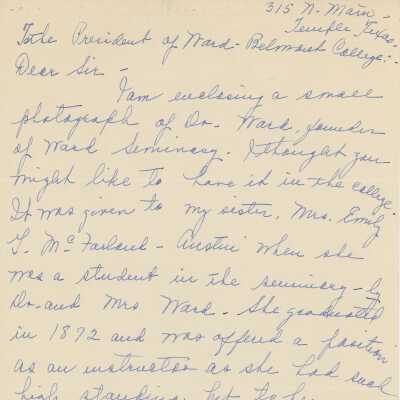 315 N. Main -
Temple, Texas.
To the President of Ward-Belmont College:-
Dear Sir -
I am enclosing a small
photograph of Dr. Ward, founder
of Ward Seminary. I thought you
might like to have it in the college.
It was given to my sister, Mrs. Emily
G. McFarland - Austin when she
was a student in the seminary - by
Dr. and Mrs Ward. She graduated
in 1872 and was offered a position
as an instructor as she had such
high standing, but to her